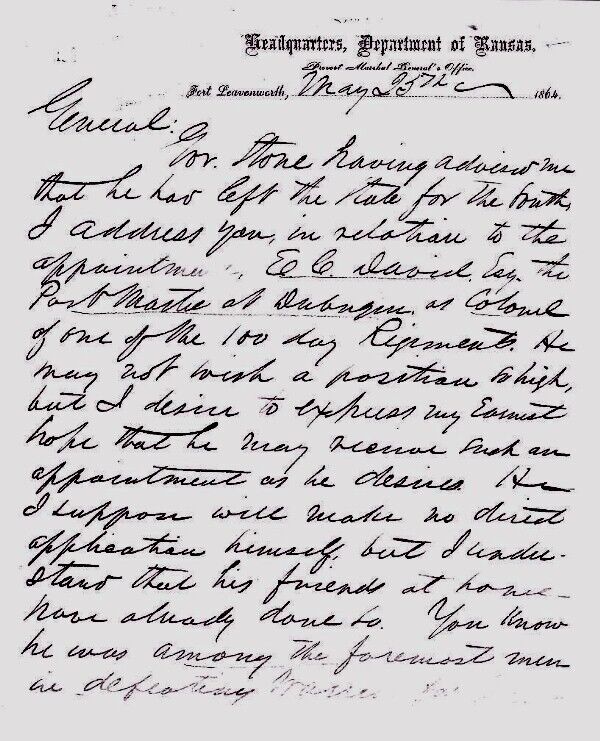 Headquarters, Department of Kansas,
Provost Marshal General's Office,
Fort Leavenworth, May 25th 1864.
General:
Gov. Stone having advised me
that he had left the State for the South,
I address you, in relation to the
appointme E. C. David, Esq. the
Post Master at Dubuque, as Colonel
of one of the 100 day Regiments. He
may not wish a position so high,
but I desire to express my Earnest
hope that he may receive such an
appointment as he desires. He
I suppose will make no direct
application himself, but I under-
stand that his friends at home
have already done so. You Know
he was among the foremost men
in defeating